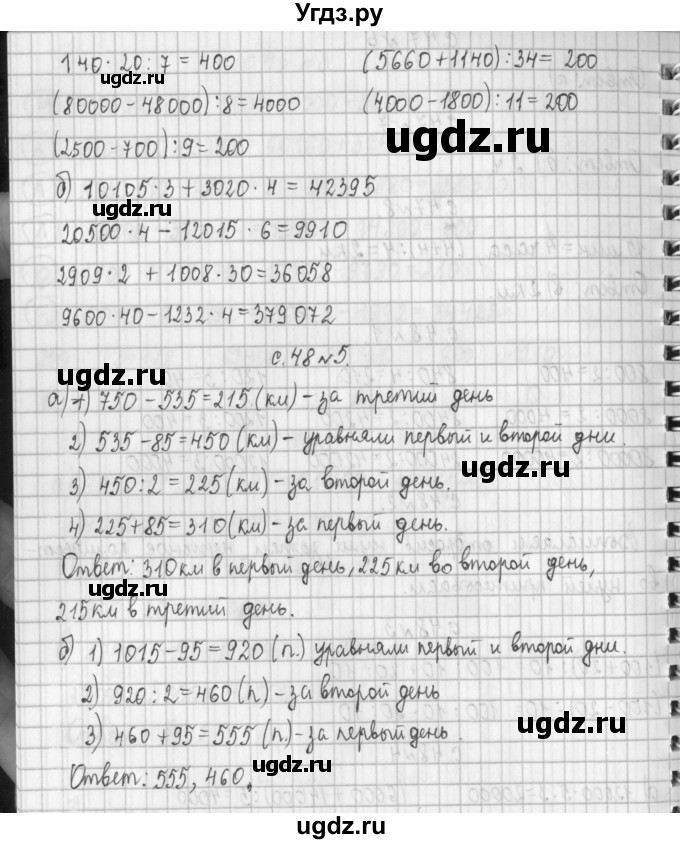 Угдз.ру
140·20:7=400 (5660+1140):34=200
gdzurok.ru
(80000-48000):8=4000 (4000-1800):11=200
ugdz.ru
(2500-700):9=200
б) 10105·3+3020·4=42395
ugdz.ru
20500·4-12015·6=9910
ugdz.ru
2909·2+1008·30=36058
9600·40-1232·4=379072
с.48№5.
ugdz.ru
а) 1) 750-535=215(км)-за третий день
ugdz.ru
2) 535-85=450(км)-уравняли первый и второй дни.
ugdz.ru
3) 450:2=225(км)-за второй день.
ugdz.ru
4) 225+85=310(км)-за первый день.
Ответ: 310км в первый день, 225км во второй день,
215км в третий день.
ugdz.ru
б) 1) 1015-95=920(п.) уравняли первый и второй дни.
ugdz.ru
2) 920:2=460(п)-за второй день
ugdz.ru
3) 460+95=555(п)-за первый день.
ugdz.ru
Ответ: 555, 460.
ugdz.ru